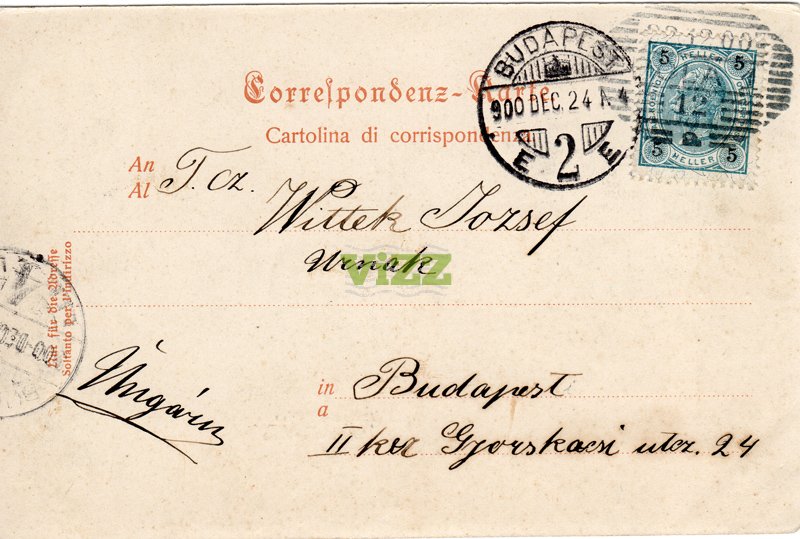 Correspondenz-Karte
Cartolina di corrispondenza
BUDAPEST
900 DEC. 24 N 4
E 2 E
5 HELLER 5
5 HELLER 5
12
An
Al
T. cz.
Wittek Jozsef
Urnak
ViZZ
Nur für die Adresse
Soltanto per l'indirizzo
Ungárn
in
a
Budapest
II ker Gjorskacsi utcz. 24